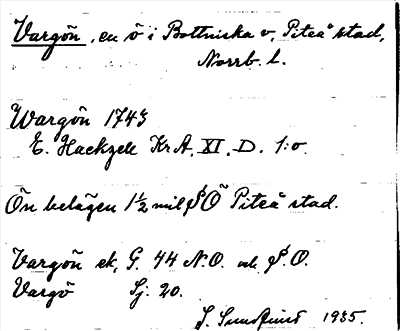 Vargön, en ö i Bottniska v, Piteå stad,
Norrb. l.
Wargön 1743
E. Hackzell Kr A. XI. D. 1:o
Ön belägen 1½ mil SÖ Piteå stad.
Vargön ek, G. 44 N.O. och S.O.
Vargö Sj. 20.
J. 1935.